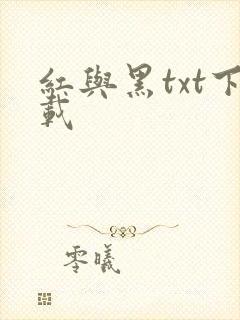 紅與黑txt下
載
零曦